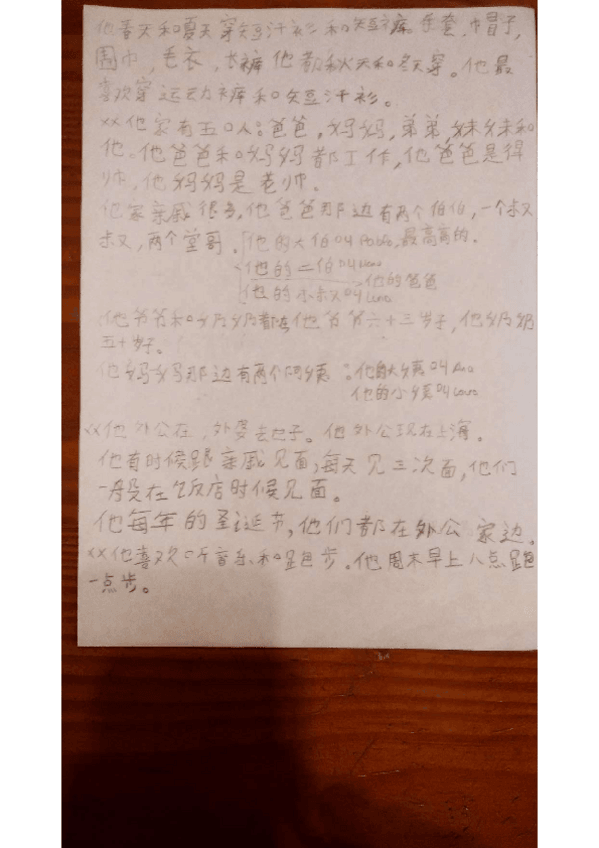 他春天和夏天穿短汗衫和短裤。手套,帽子,
围巾,毛衣,长裤他都秋天和冬天穿。他最
喜欢穿运动裤和短汗衫。
xx他家有五口人:爸爸,妈妈,弟弟,妹妹和
他。他爸爸和妈妈都工作,他爸爸是律
师,他妈妈是老师。
他家亲戚很多,他爸爸那边有两个伯伯,一个叔
叔,两个堂哥。他的大伯叫Pablo,最高高的.
他的二伯叫
他的小叔叫 他的爸爸
他爷爷和奶奶都 他爷爷六十三岁了,他奶奶
五十岁。
他妈妈那边有两个阿姨:他的大姨叫Ana
他的小姨叫Laura
xx他外公在,外婆去世了。他外公现在上海。
他有时候跟亲戚见面,每天见三次面,他们
一般在饭店时候见面。
他每年的圣诞节,他们都在外公家边。
xx他喜欢听音乐和跑步.他周末早上八点跑
一点步。